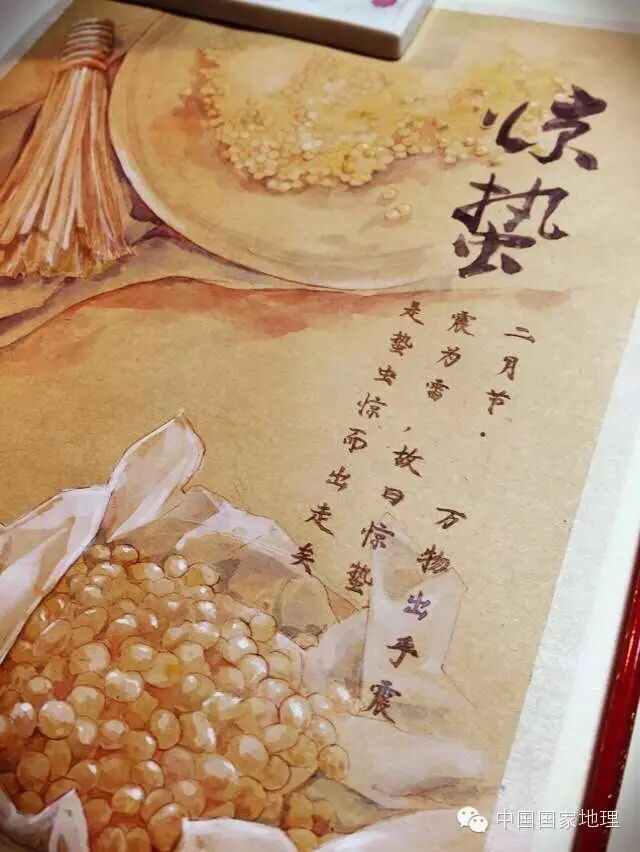 惊蛰
二月节. 万物出乎震
震为雷，故曰惊蛰
是蛰虫惊而出走矣
中国国家地理